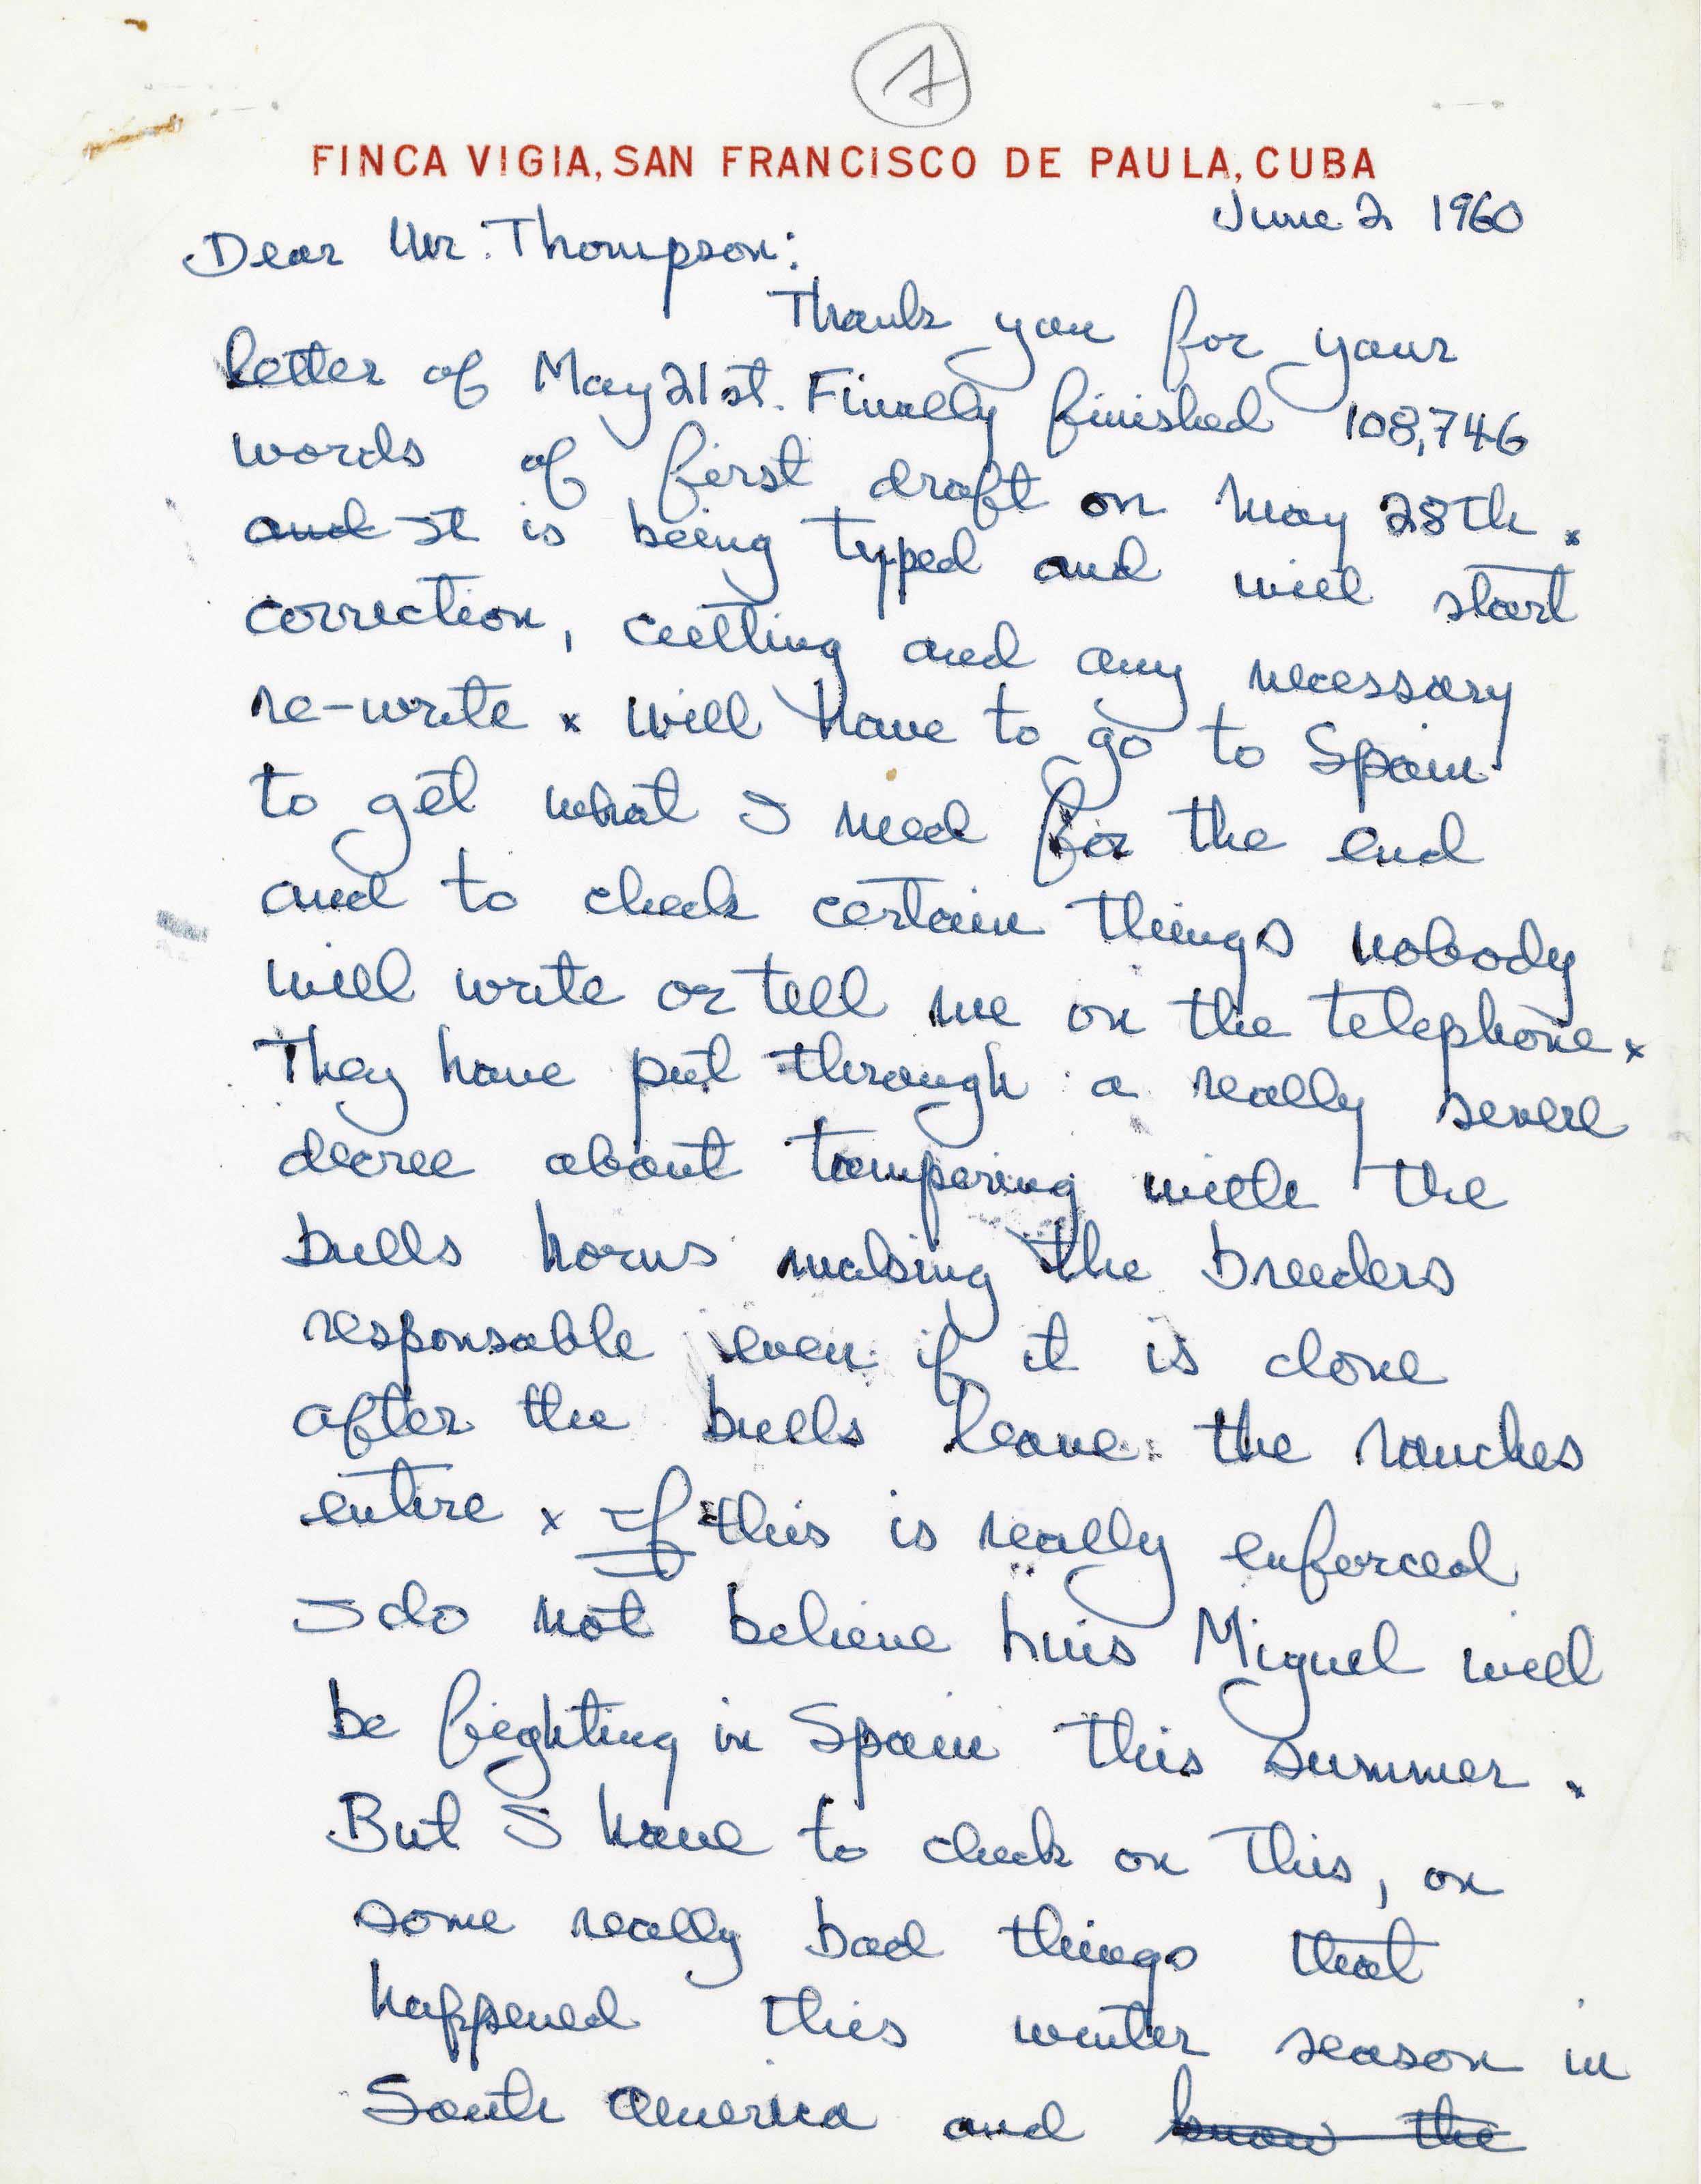 1
FINCA VIGIA, SAN FRANCISCO DE PAULA, CUBA
June 2 1960
Dear Mr. Thompson:
Thank you for your
letter of May 21st. Finally finished 108,746
words of first draft on May 28th x
and It is being typed and will start
correction, cutting and any necessary
re-write x will have to go to Spain
to get what I need for the end
and to check certain things nobody
will write or tell me on the telephone x
They have put through a really severe
decree about tampering with the
bulls horns making the breeders
responsable even if it is done
after the bulls leave the ranches
entire x If this is really enforced
I do not believe Luis Miguel will
be fighting in Spain this summer x
But I have to check on this, on
some really bad things that
happened this winter season in
South America and know the